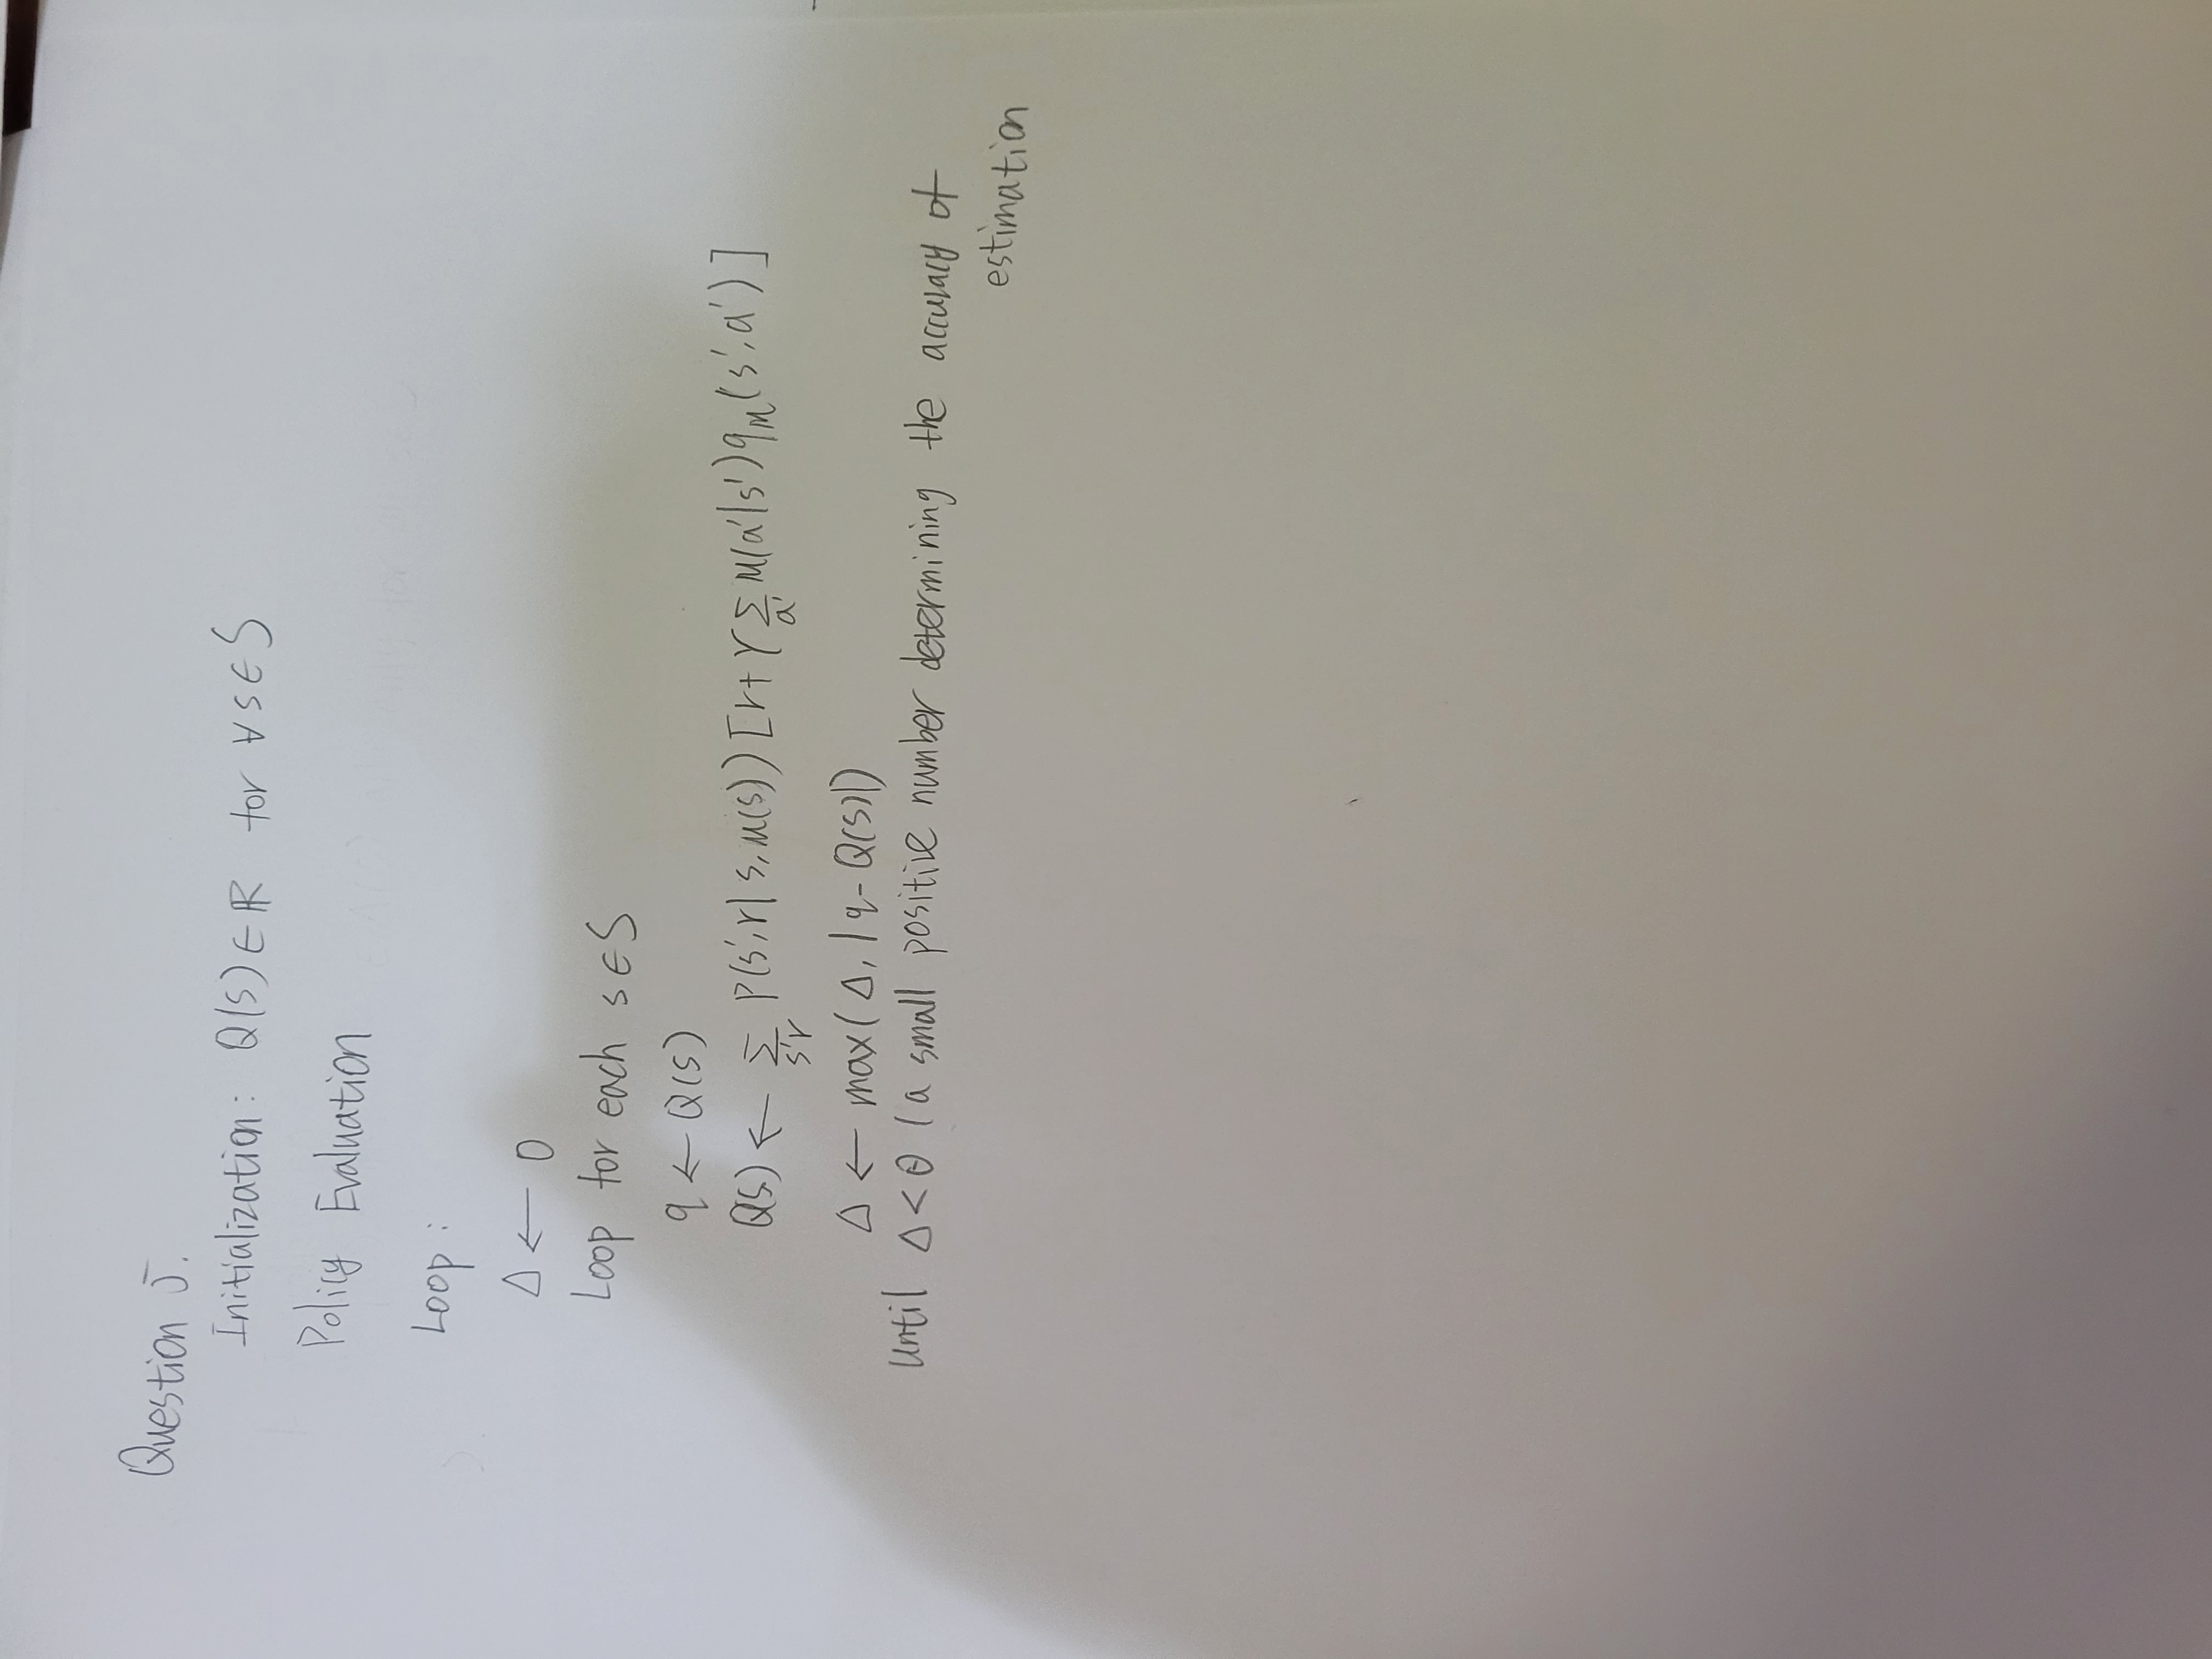 Question 5.
Initialization: Q(s) ∈ ℝ for ∀ s ∈ S
Policy Evaluation
Loop:
Δ ← 0
Loop for each s ∈ S
q ← Q(s)
Q(s) ← Σ_{s'r} P(s',r|s,μ(s)) [r + γ Σ_{a'} μ(a'|s') q_μ(s',a')]
Δ ← max(Δ, |q - Q(s)|)
Until Δ < θ (a small positive number determining the accuracy of
estimation